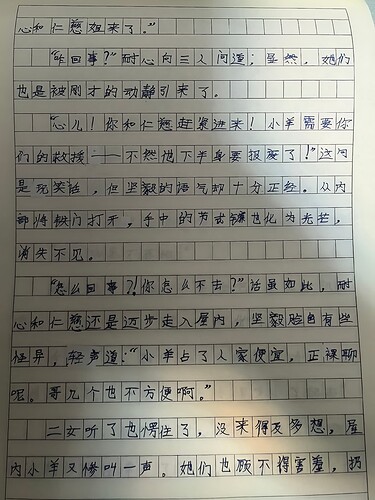 心和仁慈姐来了。”
“咋回事？”耐心向三人问道；显然，她们
也是被刚才的动静引来了。
“心儿！你和仁慈赶紧进来！小羊需要你
们的救援——不然他下半身要报废了！”这问
是玩笑话，但坚毅的语气却十分正经。从内
部将铁门打开，手中的节式镰也化为光芒，
消失不见。
“怎么回事？！你怎么不去？”话虽如此，耐
心和仁慈还是迈步走入屋内，坚毅脸色有些
怪异，轻声道：“小羊占了人家便宜，正裸聊
呢。哥几个也不方便啊。”
二女听了也愣住了，没来得及多想，屋
内小羊又惨叫一声。她们也顾不得害羞，拐